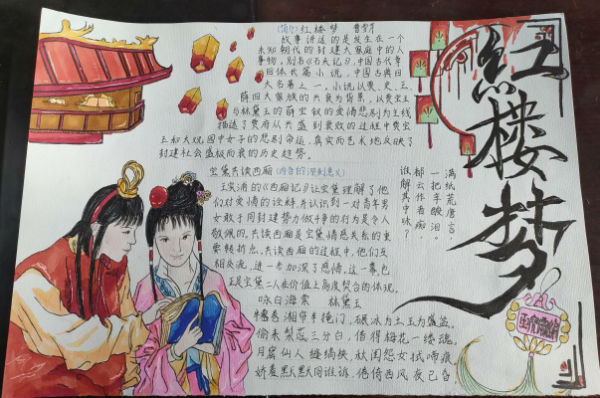 (简介)红楼梦 曹雪芹
故事讲述的是发生在一个
未知朝代的封建大家庭中的人
事物,别名《石头记》,中国古代章
回体长篇小说,中国古典四
大名著之一,小说以贾、史、王、
薛四大家族的兴衰为背景,以贾宝玉
与林黛玉的爱情悲剧为主线
描述了贾府从兴盛到衰败的过程中贾宝
玉和大观园中女子的悲剧命运,真实而艺术地反映了
封建社会盛极而衰的历史趋势。
宝黛共读西厢
王实甫的《西厢记》让宝黛理解了他
们对爱情的诠释,并认识到一对青年男
女敢于同封建势力做斗争的行为是令人
敬佩的,共读西厢是宝黛情感关系的重
要转折点,共读西厢的过程中,他们互
相交流,进一步加深了感情,这一事也
正是宝黛二人在价值上高度契合的体现。
咏白海棠 林黛玉
半卷湘帘半掩门,碾冰为土玉为盆。
偷来梨蕊三分白,借得梅花一缕魂。
月窟仙人缝缟袂,秋闺怨女拭啼痕
娇羞默默同谁诉,倦倚西风夜已昏。
满纸荒唐言,
一把辛酸泪。
都云作者痴
谁解其中味
红楼梦